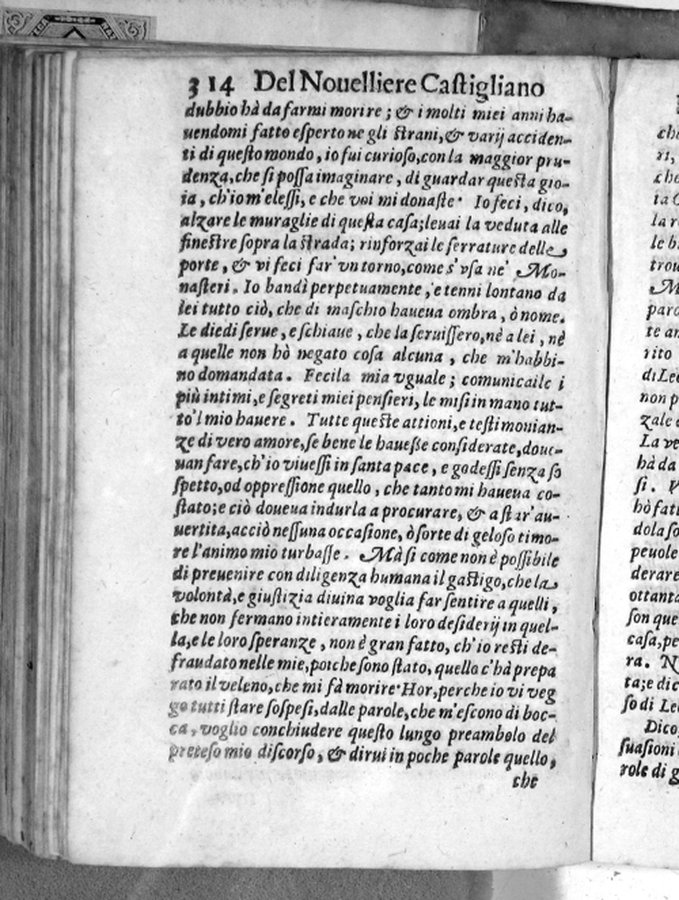 314 Del Nouelliere Castigliano
dubbio hà da farmi morire; & i molti miei anni ha-
uendomi fatto esperto ne gli strani, & varij acciden-
ti di questo mondo, io fui curioso, con la maggior pru-
denza, che si possa imaginare, di guardar questa gio-
ia, ch'io m'elessi, e che voi mi donaste. Io feci, dico,
alzare le muraglie di questa casa; leuai la veduta alle
finestre sopra la strada; rinforzai le serrature delle
porte, & vi feci far' vn torno, come s'vsa ne' Mo-
nasteri. Io bandì perpetuamente, e tenni lontano da
lei tutto ciò, che di maschio haueua ombra, ò nome.
Le diedi serue, e schiaue, che la seruissero, nè a lei, nè
a quelle non hò negato cosa alcuna, che m'habbi-
no domandata. Fecila mia vguale; comunicaile i
più intimi, e segreti miei pensieri, le misi in mano tut-
to'l mio hauere. Tutte queste attioni, e testimonian-
ze di vero amore, se bene le hauesse considerate, doue-
uan fare, ch'io viuessi in santa pace, e godessi senza so
spetto, od oppressione quello, che tanto mi haueua co-
stato; e ciò doueua indurla a procurare, & a star'au-
uertita, acciò nessuna occasione, ò sorte di geloso timo-
re l'animo mio turbasse. Mà si come non è possibile
di preuenire con diligenza humana il gastigo, che la
volontà, e giustizia diuina voglia far sentire a quelli,
che non fermano intieramente i loro desiderij in quel-
la, e le loro speranze, non è gran fatto, ch'io resti de-
fraudato nelle mie, poiche sono stato, quello c'hà prepa
rato il veleno, che mi fà morire. Hor, perche io vi veg
go tutti stare sospesi, dalle parole, che m'escono di boc-
ca, voglio conchiudere questo lungo preambolo del
preteso mio discorso, & dirui in poche parole quello,
che
che
ri,
che
ta
la r
le b
trou
M
paro
te an
rito
di Leo
non p
zale
La ve
hà da
si. V
hò fatt
dola so
peuole
derare
ottanta
son que
casa, pe
ra. N
ta; e dic
so di Leo
Dico
suasioni
role di g